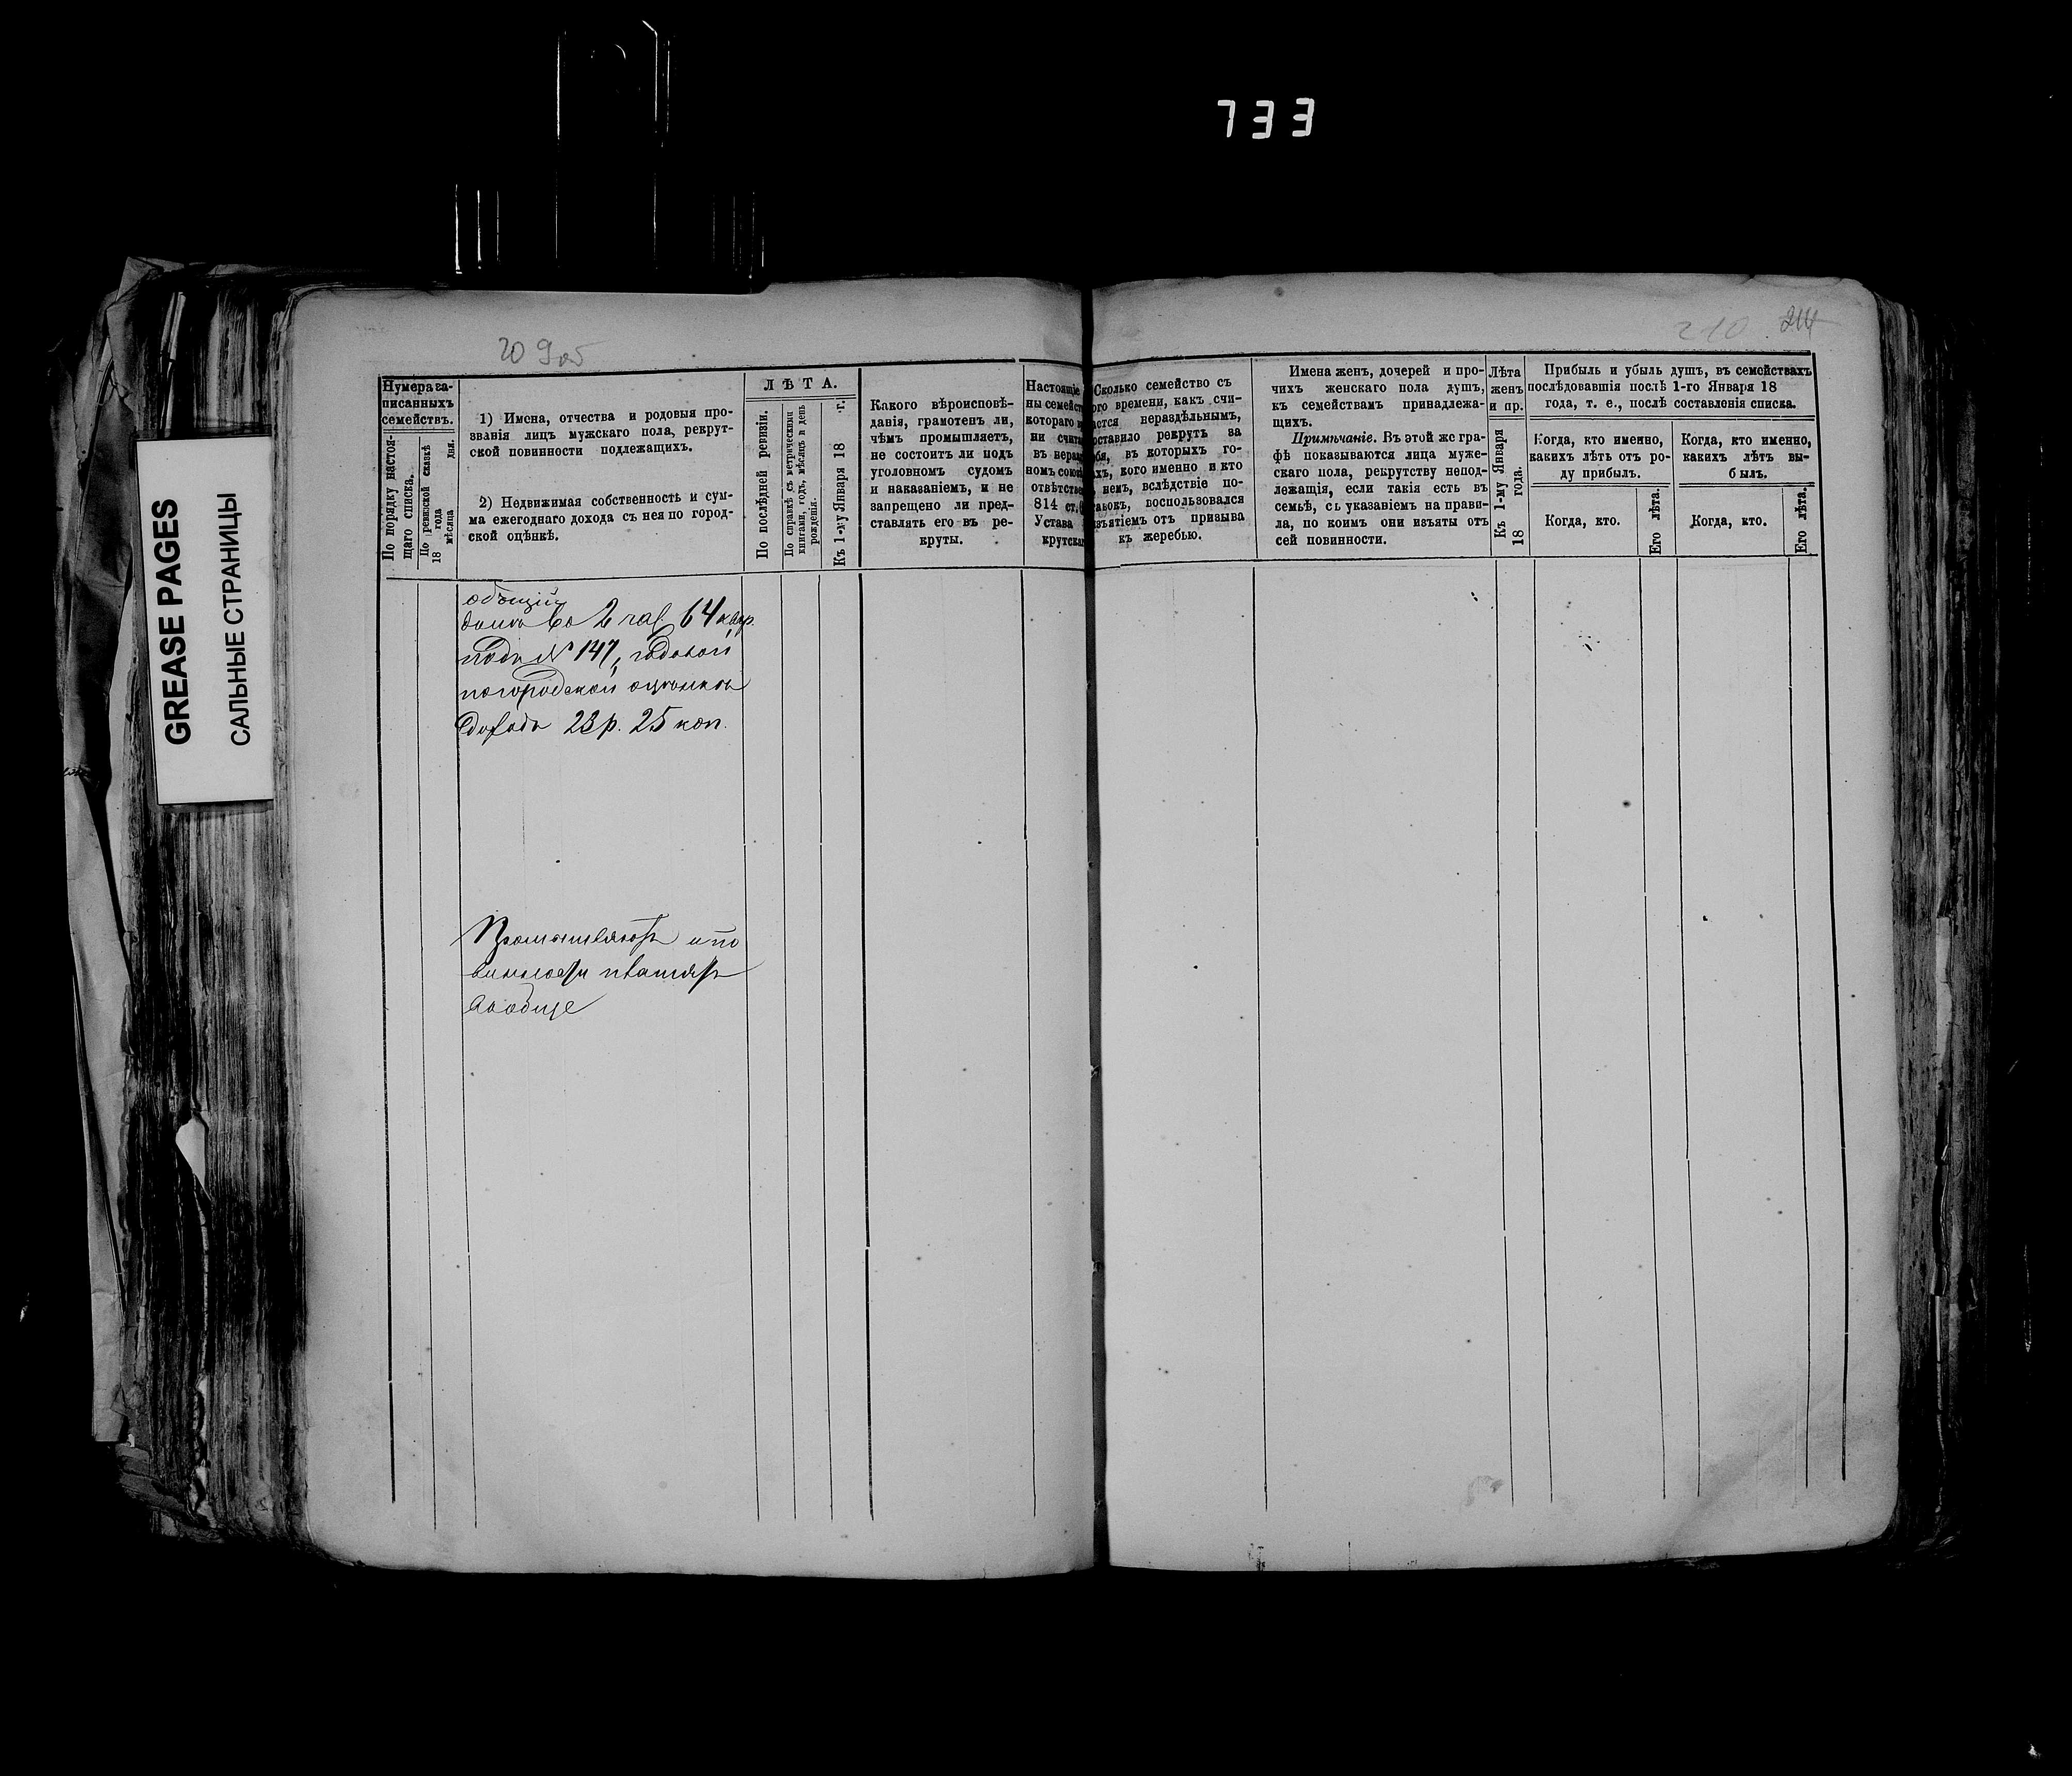 733
GREASE PAGES
САЛЬНЫЕ СТРАНИЦЫ
209об
210 214
Нумера за-
писанныхъ
семействъ.
По порядку настоя-
щаго списка.
По ревизской сказкѣ
18 года
мѣсяца дня.
1) Имена, отчества и родовыя про-
званія лицъ мужскаго пола, рекрут-
ской повинности подлежащихъ.
2) Недвижимая собственность и сум-
ма ежегоднаго дохода съ нея по город-
ской оцѣнкѣ.
ЛѢТА.
По послѣдней ревизіи.
По справкѣ съ метрическими
книгами, годъ, мѣсяцъ и день
рожденія.
Къ 1-му Января 18 г.
Какого вѣроисповѣ-
данія, грамотенъ ли,
чѣмъ промышляетъ,
не состоитъ ли подъ
уголовномъ судомъ
и наказаніемъ, и не
запрещено ли пред-
ставлять его въ ре-
круты.
Настоящіе
ны семейст
котораго
ни счита
въ нераз
номъ союз
отвѣтстве
814 ст.
Устава
крутска
Сколько семейство съ
ого времени, какъ счи-
ается нераздѣльнымъ,
оставило рекрутъ за
ебя, въ которыхъ го-
ахъ, кого именно и кто
немъ, вслѣдствіе по-
тавокъ, воспользовался
изъятіемъ отъ призыва
къ жеребью.
Имена женъ, дочерей и про-
чихъ женскаго пола душъ,
къ семействамъ принадлежа-
щихъ.
Примѣчаніе. Въ этой же гра-
фѣ показываются лица муже-
скаго пола, рекрутству непод-
лежащія, если такія есть въ
семьѣ, съ указаніемъ на прави-
ла, по коимъ они изъяты отъ
сей повинности.
Лѣта
женъ
и пр.
Къ 1-му Января
18 года.
Прибыль и убыль душъ, въ семействахъ
послѣдовавшія послѣ 1-го Января 18
года, т. е., послѣ составленія списка.
Когда, кто именно,
какихъ лѣтъ отъ ро-
ду прибылъ.
Когда, кто.
Его лѣта.
Когда, кто именно,
какихъ лѣтъ вы-
былъ.
Когда, кто.
Его лѣта.
общій
домъ во 2 час. 64 квар.
подъ № 147, годовой
погородской оцѣнкѣ
доходъ 23 р. 25 коп.
Промышляютъ и по
винности платятъ
вообще